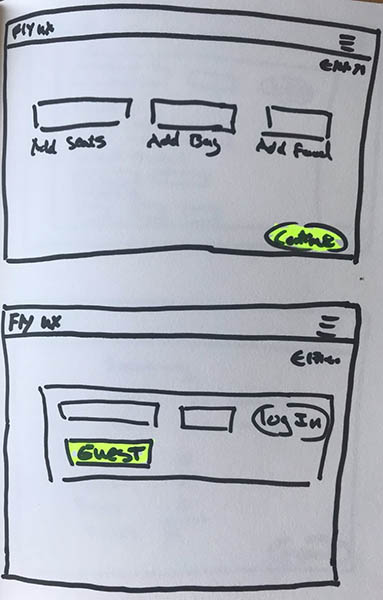 FLY UX
Add Seats Add Bag Add Food
Continue
Fly UX
Log In
GUEST